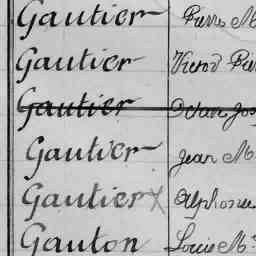 Gautier Pierre M
Gautier Victor Pier
Gautier Jos
Gautier Jean M
Gautier Alphonse
Gauton Louis M